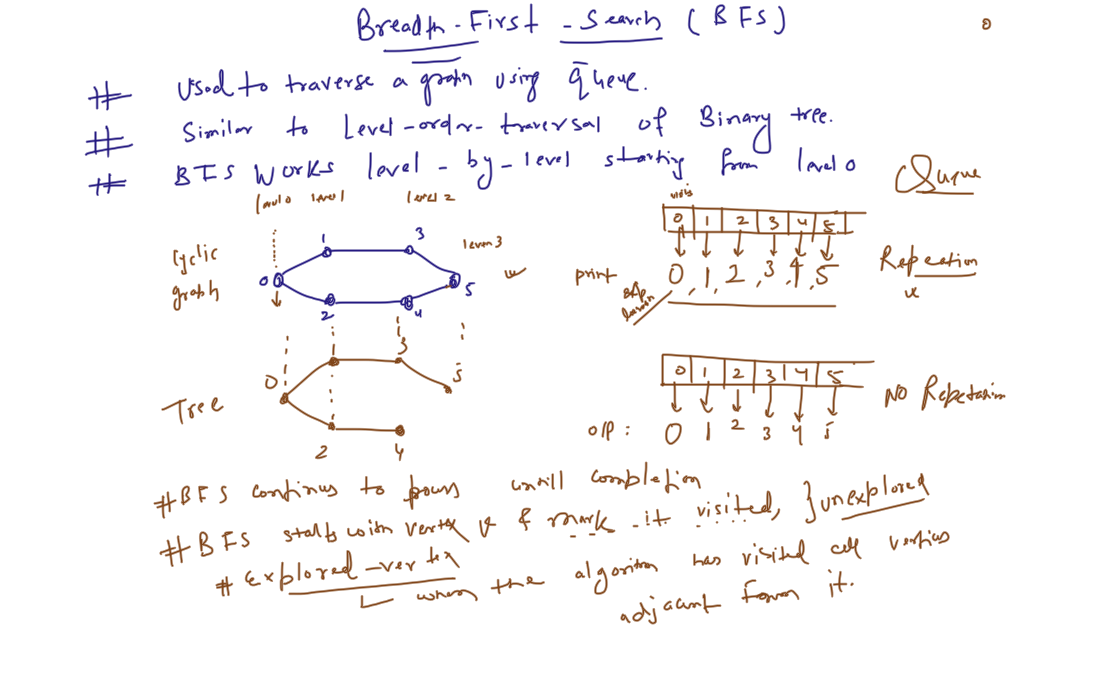 Breadth - First - Search ( BFS )
# Used to traverse a graph using queue.
# Similar to Level - order - traversal of Binary tree.
# BFS Works level - by - level starting from level 0
Queue
level 0 level 1 level 2
level 3
Cyclic
graph
0 1 2 3 4 5
0 1 2 3 4 5
print 0, 1, 2, 3, 4, 5
Repeation
x
Tree
0 1 2 3 4 5
0 1 2 3 4 5
NO Repetation
O/P : 0 1 2 3 4 5
# BFS continus to untill completion
# BFS starts with vertex v & mark it visited, } unexplored
# Explored - vertex
when the algorithm has visited all vertices
adjacent from it.